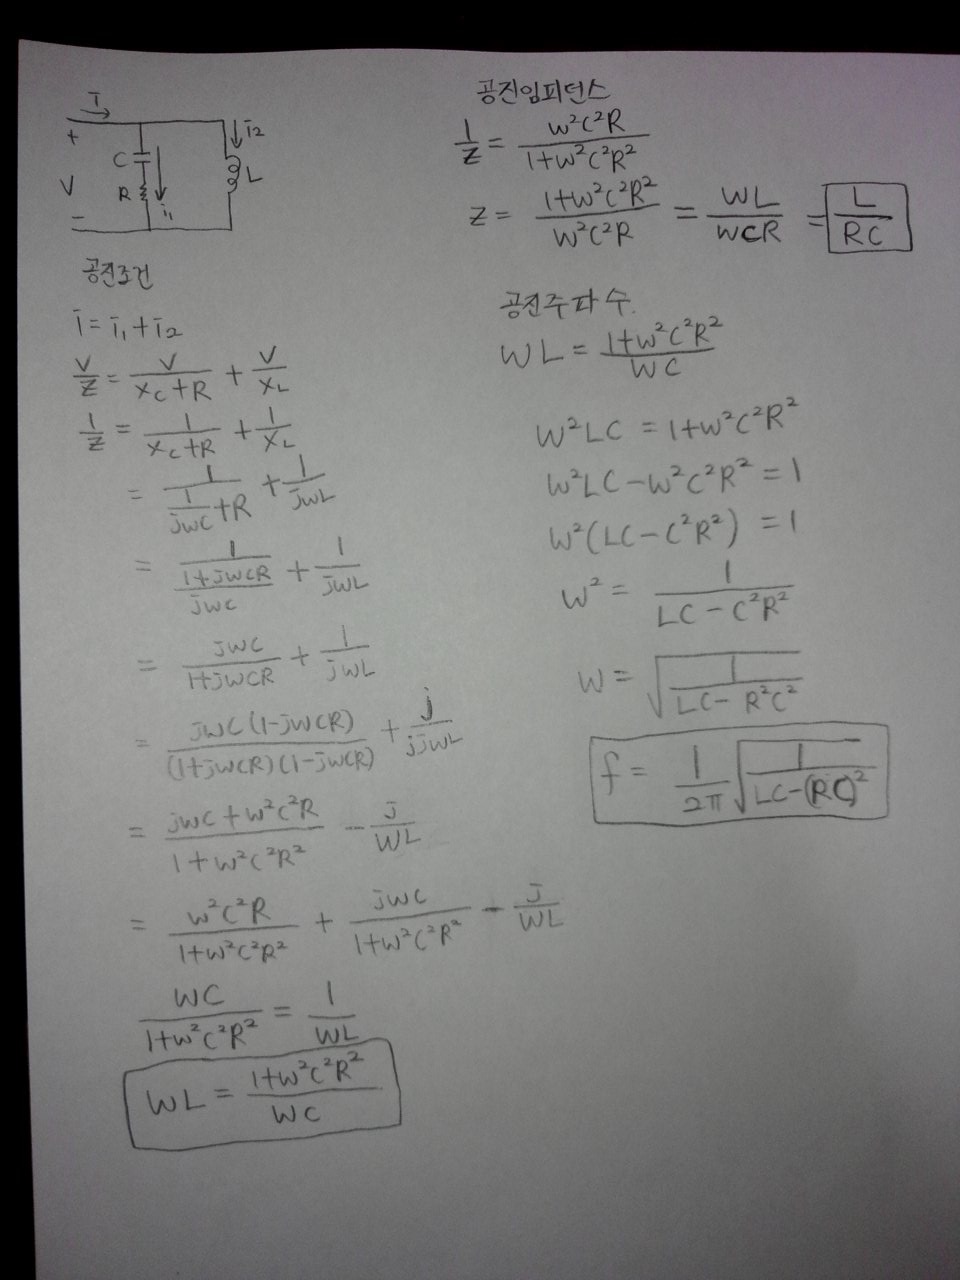 I
+
C
R
V
-
i₁
i₂
L
공진조건
i = i₁ + i₂
V/Z = V/(Xc+R) + V/XL
1/Z = 1/(Xc+R) + 1/XL
= 1/(1/jwC + R) + 1/jwL
= 1/((1+jwCR)/jwC) + 1/jwL
= jwC/(1+jwCR) + 1/jwL
= jwC(1-jwCR)/((1+jwCR)(1-jwCR)) + j/jjwL
= (jwC + w²C²R)/(1+w²C²R²) - j/wL
= w²C²R/(1+w²C²R²) + jwC/(1+w²C²R²) - j/wL
wC/(1+w²C²R²) = 1/wL
wL = (1+w²C²R²)/wC
공진임피던스
1/Z = w²C²R/(1+w²C²R²)
Z = (1+w²C²R²)/(w²C²R) = wL/wCR = L/RC
공진주파수.
wL = (1+w²C²R²)/wC
w²LC = 1+w²C²R²
w²LC - w²C²R² = 1
w²(LC - C²R²) = 1
w² = 1/(LC - C²R²)
w = √(1/(LC - R²C²))
f = 1/2π √(1/(LC-(RC)²))